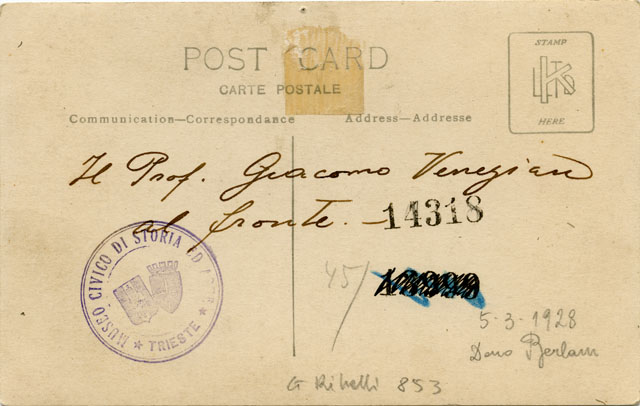 POST CARD
CARTE POSTALE
STAMP
HERE
Communication—Correspondance
Address—Addresse
Il Prof. Giacomo Venezian
al fronte. — 14318
MUSEO CIVICO DI STORIA ED
TRIESTE
45/
5-3-1928
Dono Berlam
G Ribelli 853